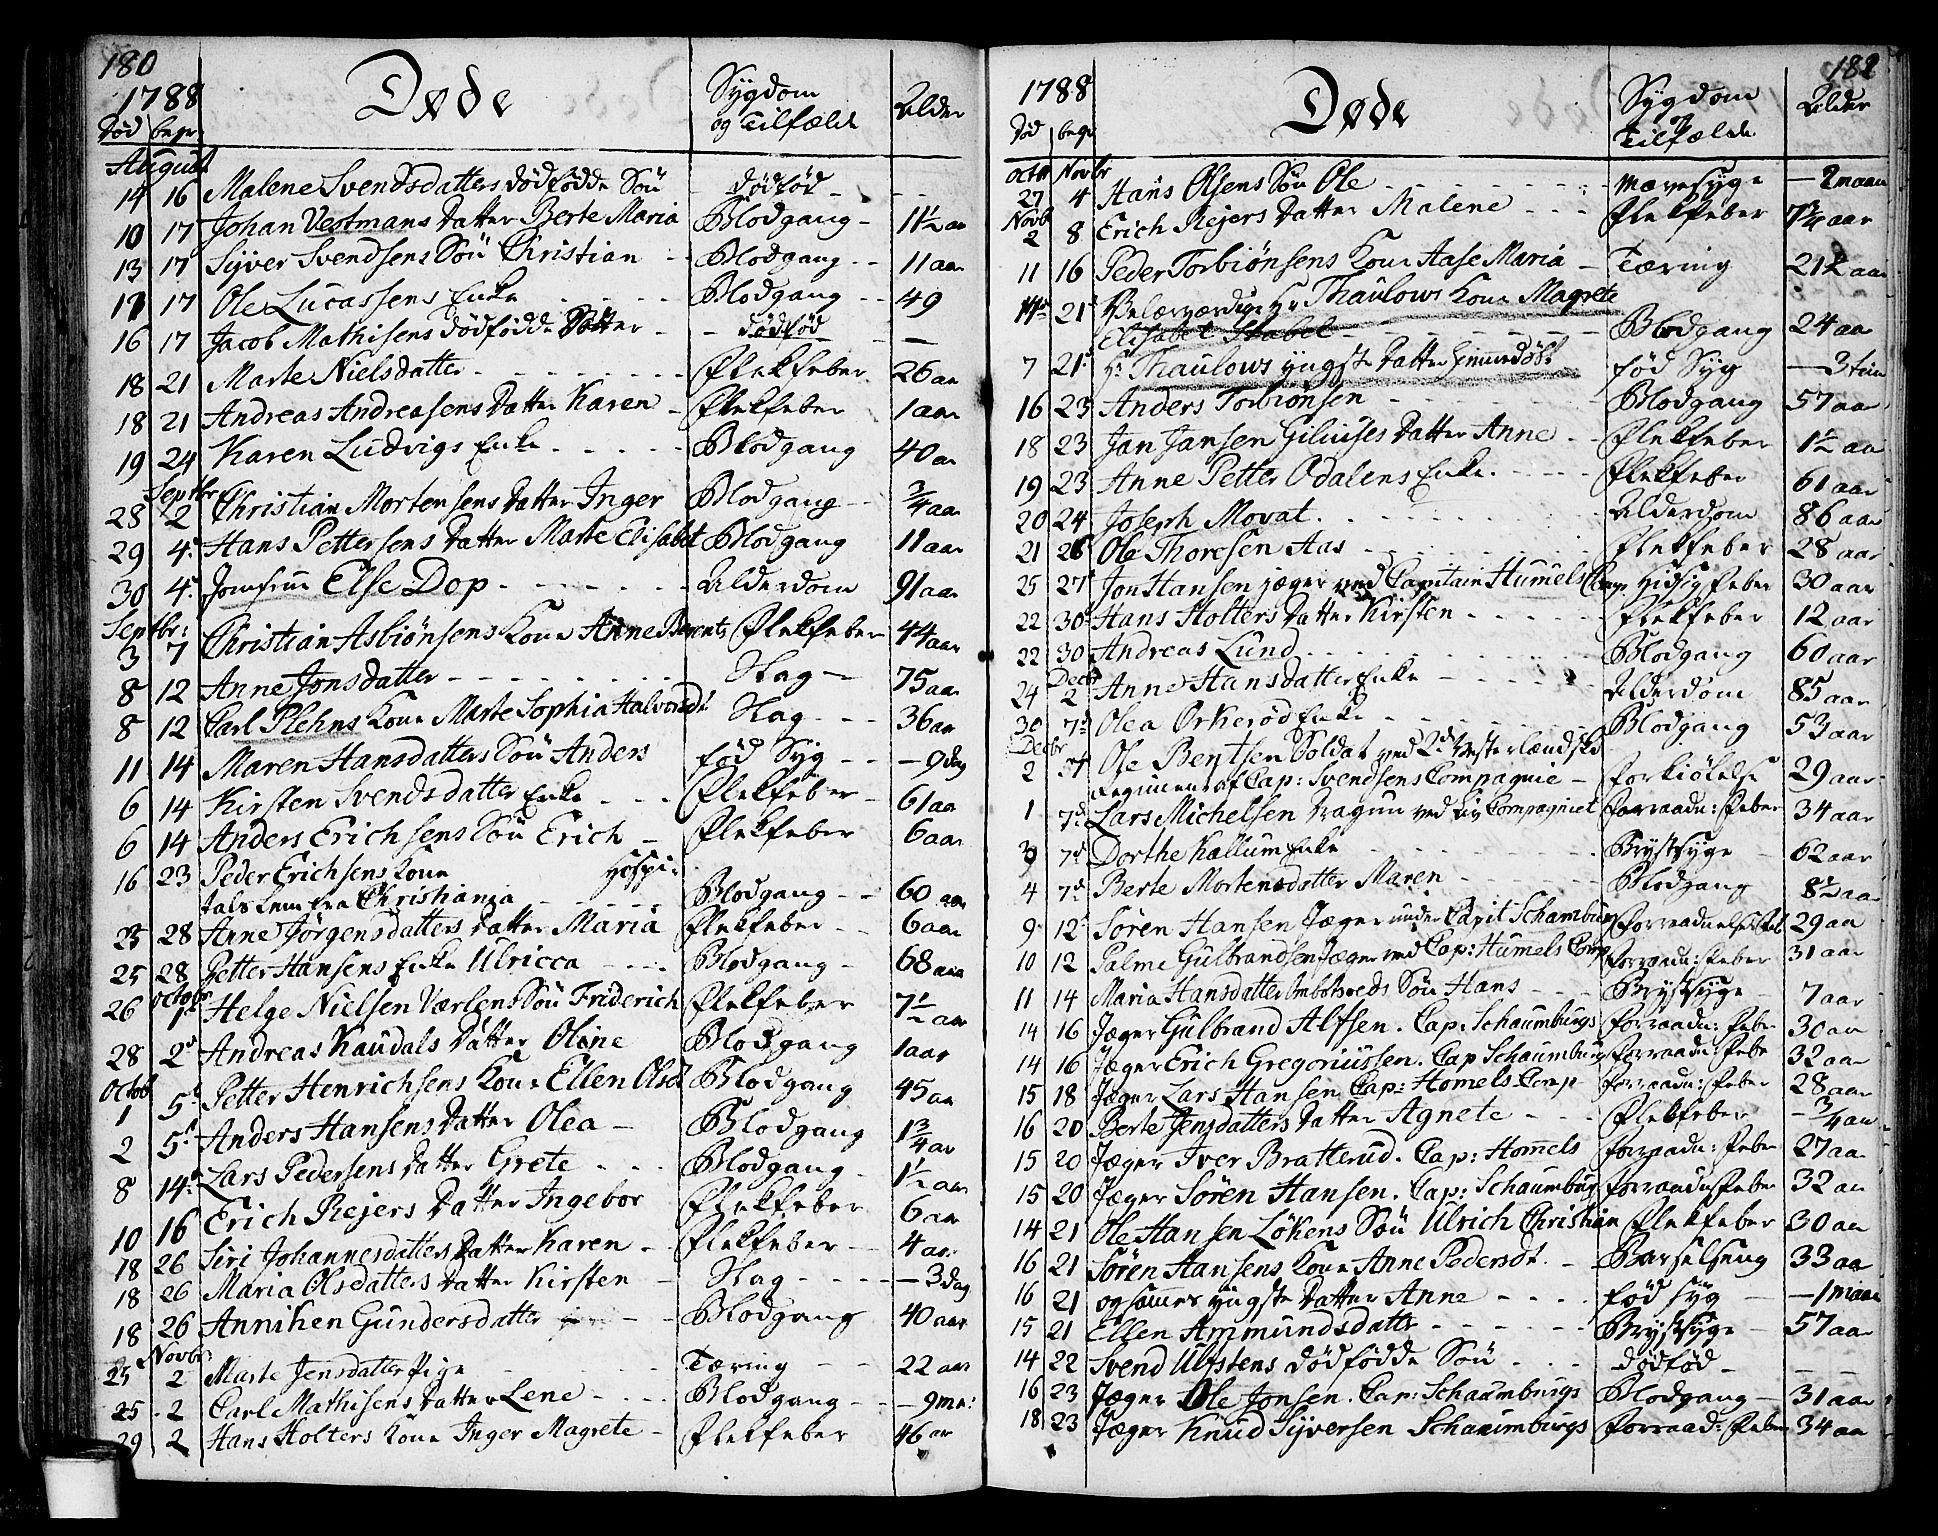 180
1788
Døde
Sygdom
og Tilfælde
Alder
Død begr:
August
14 16 Malene Svendsdatters dødfödde Sön - dödföd - - -
10 17 Johan Vestmans Datter Berte Maria Blodgang - 11 1/2 aar
13 17 Syver Svendsens Sön Christian - Blodgang - - 11 aar
17 17 Ole Lucassens Enke - - - - Blodgang - - 49
16 17 Jacob Mathisens dödfödde Datter - - dödföd -
18 21 Marte Nielsdatter - - - - Flekfeber 26 aar
18 21 Andreas Andreasens Datter Karen - Flekfeber 1 aar
19 24 Karen Ludvigs Enke - - - - Blodgang 40 aar
Septbr
28 2 Christian Mortensens Datter Inger Blodgang - 3/4 aar
29 4. Hans Pettersens Datter Marte Elisabet Blodgang 11 aar
30 4. Jomfrue Else Dop - - - - Alderdom 91 aar
Septbr:
3 7 Christian Asbiönsens Kone Anne Berents Flekfeber 44 aar
8 12 Anne Jonsdatter - - - - Slag - 75 aar
8 12 Carl Plehns Kone Marte Sophia Halvorsdt Slag - - 36 aar
11 14 Maren Hansdatters Sön Anders föd Syg - - - 9 dag
6 14 Kirsten Svendsdatter Enke - - - Flekfeber - 61 aar
6 14 Anders Erichsens Sön Erich - Flekfeber 6 aar
16 23 Peder Erichsens Kone Hospi-
tals Lem fra Christiania - - - Blodgang - - 60 aar
23 28 Anne Jörgensdatters Datter Maria Flekfeber - - 6 aar
25 28 Petter Hansens Enke Ulricca - - - Blodgang - 68 aar
Octobr
26 1 Helge Nielsen Værlens Sön Friderich Flekfeber 7 1/2 aar
28 2 Andreas Kaudals Datter Oline Blodgang 1 aar
Octob
1 5 Petter Henrichsens Kone Ellen Olsd Blodgang 45 aar
2 5 Anders Hansens Datter Olea - Blodgang 1 3/4 aar
8 14 Lars Pedersens Datter Grete - - - Blodgang - 1 1/2 aar
10 16 Erich Rejers Datter Ingebor Flekfeber 6 aar
18 26 Siri Johannesdatters Datter Karen - - Flekfeber - - 4 aar
18 26 Maria Olsdatters Datter Kirsten - Slag - - - - - 3 dag
18 26 Anniken Gundersdatter - - Blodgang 40 aar
Novbr:
25 2 Marte Jensdatter Pige Tæring - - 22 aar
25 2 Carl Mathisens Datter Lene - - - Blodgang - - - 9 mr:
29 2 Hans Holters Kone Inger Magrete - Flekfeber 46 aar
182
1788
Døde
Sygdom
og
Tilfælde
Alder
Död begr
Octr Novbr
27 4 Hans Olsens Sön Ole - - - - Mavesyge - 2 maan
Novb
2 8 Erich Rejers Datter Malene - - - Flekfeber 7 3/4 aar
11 16 Peder Torbiönsens Kone Aase Maria - Tæring 21 1/2 aar
21 Velærværdige Hr Thaulows Kone Magrete
Elisabet Stabel - - - - Blodgang 24 aar
7 21 Hr Thaulows yngste Datter föd Syg - 3 tim
16 23 Anders Torbiönsen - - - - Blodgang 57 aar
18 23 Jan Jansen Giluises Datter Anne - - Flekfeber 1 1/2 aar
19 23 Anne Petter Odalens Enke - - - - Flekfeber 61 aar
20 24 Joseph Movat - - - - Alderdom 86 aar
21 26 Ole Thoresen Aas - - - - Flekfeber 28 aar
25 27 Jon Hansen jæger ved Capitain Humels Comp Hidsig Feber 30 aar
22 30 Hans Holters Datter Kirsten - - - - Flekfeber 12 aar
22 30 Andreas Lund - - - - Blodgang 60 aar
Decbr
24 2 Anne Hansdatter Enke - - - - Alderdom 85 aar
30 7 Olea Orkeröd Enke - - - - Blodgang 53 aar
Decbr
2 7 Ole Bentsen Soldat ved 2d Vesterlændske
Regiment af Cap: Svendsens Compagnie - Forkiölelse 29 aar
1 7d Lars Michelsen Dragun ved Liv Compagniet Forraadn: Feber 34 aar
3 7d Dorthe Kallum Enke - - - - Brystsyge 62 aar
4 7d Berte Mortensdatter Maren - - - Blodgang 8 1/2 aar
9 12 Sören Hansen Jæger under Capit Schamburg Forraadnelse Feb 29 aar
10 12 Palme Gulbrandsen Jæger ved Cap: Humels Comp Forraadn: Feber 31 aar
11 14 Maria Hansdatter Sön Hans - - - Brystsyge 7 aar
14 16 Jæger Gulbrand Alfsen. Cap: Schaumburgs Forraadn: Feber 30 aar
14 16 Jæger Erich Gregoriussen. Cap Schaumburg Forraadn: Feber 32 aar
15 18 Jæger Lars Hansen Cap: Homels Comp Forraadn: Feber 28 aar
16 20 Berte Jensdatters Datter Agnete - - - Flekfeber - 3/4 aar
15 20 Jæger Iver Bratterud. Cap: Homels Forraadn: Feber 27 aar
15 20 Jæger Sören Hansen. Cap: Schaumburg Forraadn: Feber 32 aar
14 21 Ole Hansen Lökens Sön Ulrich Christian Flekfeber 30 aar
16 21 Sören Hansens Kone Anne Pedersdt. - Barselseng 33 aar
16 21 og sammes yngste Datter Anne - - - - föd syg - 1 maan
15 21 Ellen Ammundsdatter - - - - Brystsyge - 57 aar
14 22 Svend Ulfstens dödfödde Sön - - - dödföd - - -
16 23 Jæger Ole Jonsen. Cap: Schaumburgs Blodgang - 31 aar
18 23 Jæger Knud Syversen Schaumburgs Forraad: Feber 34 aar